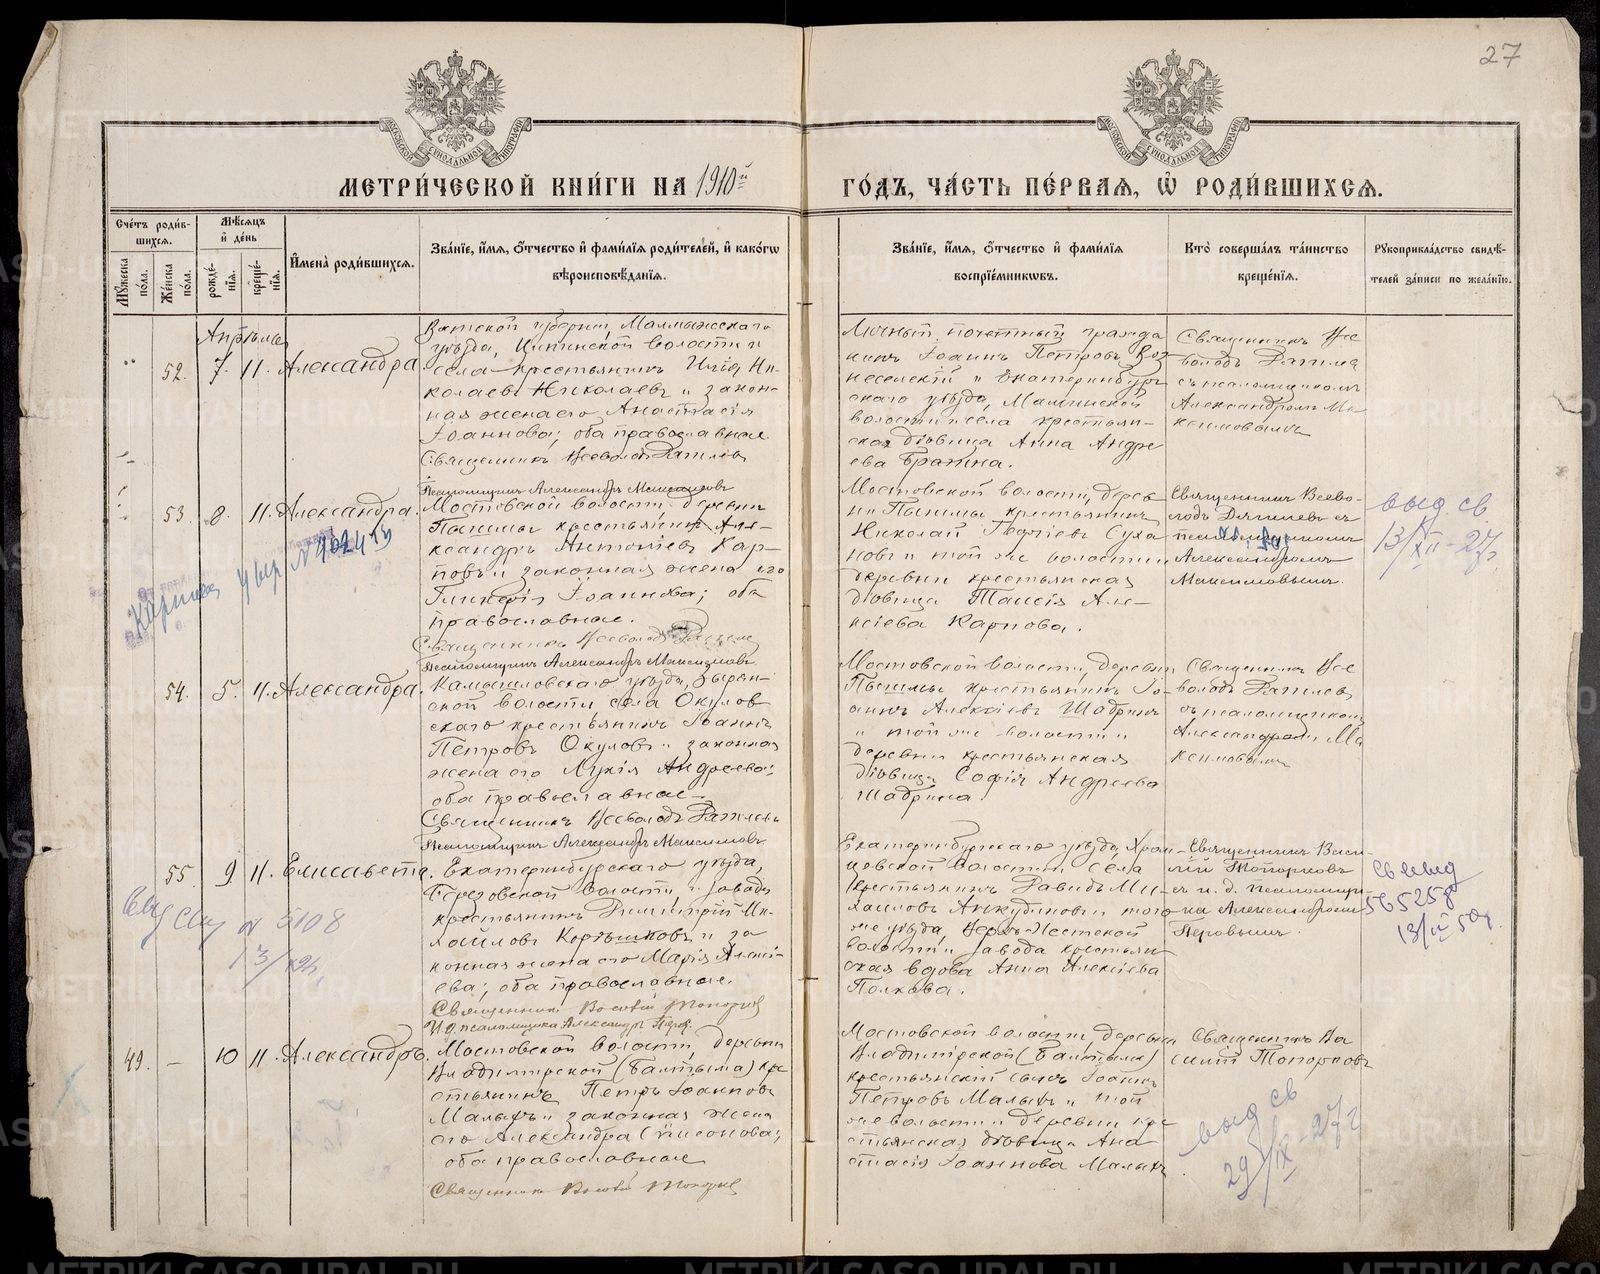 27
МЕТРИ́ЧЕСКОЙ КНИ́ГИ НА 1910й
ГО́ДЪ, ЧА́СТЬ ПЕ́РВАЯ, Ѡ҆ РОДИ́ВШИХСЯ.
Сче́тъ роди́в-
шихся.
Му́жеска по́ла.
Же́нска по́ла.
Мѣ́сяцъ
и҆ де́нь
рожде́-
нїя.
креще́-
нїя.
И҆мена̀ роди́вшихся.
Зва́нїе, и҆́мя, ѻ҆́тчество и҆ фами́лїя роди́телей, и҆ како́гѡ
вѣроисповѣ́данїя.
Зва́нїе, и҆́мя, ѻ҆́тчество и҆ фами́лїя
воспрїе́мниковъ.
Кто̀ соверша́лъ та́инство
креще́нїя.
Рꙋкоприкла́дство свидѣ́-
телей за́писи по жела́нїю.
Апрѣль
52. 7. 11. Александра.
Вятской губерніи, Малмыжскаго
уѣзда, волости и
села крестьянинъ Илія Ни-
колаевъ Николаевъ и закон-
ная жена его Анастасія
Іоаннова; оба православные.
Священникъ Всеволодъ
Псаломщикъ Александръ Максимовъ
Личный почетный гражда
нинъ Іоаннъ Петровъ Воз
несенскій и Екатеринбург
скаго уѣзда,
волости и села крестьян-
ская дѣвица Анна Андре
ева
Священникъ Все
володъ
съ псаломщикомъ
Александромъ Ма
ксимовымъ
53. 8. 11. Александра.
Мостовской волости, деревни
Пышмы крестьянинъ Але-
ксандръ Антоніевъ Кар-
повъ и законная жена его
Гликерія Іоаннова; оба
православные.
Священникъ Всеволодъ
Псаломщикъ Александръ Максимовъ
Мостовской волости, дерев
ни Пышмы крестьянинъ
Николай Георгіевъ Суха
новъ и той же волости и
деревни крестьянская
дѣвица Таисія Але-
ксіева Карпова.
Священникъ Всево-
лодъ Дягилевъ съ
псаломщикомъ
Александромъ
Максимовымъ.
выд св
13/XII-27г.
54. 5. 11. Александра.
Камышловскаго уѣзда,
ской волости села Окулов
скаго крестьянинъ Іоаннъ
Петровъ Окуловъ и законная
жена его Лукія Андреева;
оба православные.
Священникъ Всеволодъ
Псаломщикъ Александръ Максимовъ
Мостовской волости, деревни
Пышмы крестьянинъ Іо-
аннъ Алексіевъ Шадринъ
и той же волости и
деревни крестьянская
дѣвица Софія Андреева
Шадрина.
Священникъ Все
володъ
съ псаломщикомъ
Александромъ Ма
ксимовымъ
55. 9 11. Елисавета.
Екатеринбургскаго уѣзда,
Березовской волости и завода
крестьянинъ Димитрій Ми-
хайловъ и за
конная жена его Марія Алексі-
ева; оба православные.
Священникъ Василій Топорковъ
И. д. псаломщика Александръ Перов
Екатеринбургскаго уѣзда,
волости и села
крестьянинъ Давидъ Ми-
хаиловъ Анкудиновъ и того
же уѣзда, Верхъ-Исетской
волости и завода крестьян
ская вдова Анна Алексіева
Попкова.
Священникъ Васи-
лій Топорковъ
съ и. д. псаломщи-
ка Александромъ
Перовымъ.
565258
13/ 50г.
N 5108
49. – 10 11. Александръ.
Мостовской волости, деревни
Владимірской (Балтыма) кре
стьянинъ Петръ Іоанновъ
Малыхъ и законная жена
его Александра Симеонова;
оба православные
Священникъ Василій Топорковъ
Мостовской волости, деревни
Владимірской (Балтыма)
крестьянскій сынъ Іоаннъ
Петровъ Малыхъ и той
же волости и деревни кре
стьянская дѣвица Ана
стасія Іоаннова Малыхъ
Священникъ Ва
силій Топорковъ
выд св
29/IX-27г
METRIKI.GASO-URAL.RU